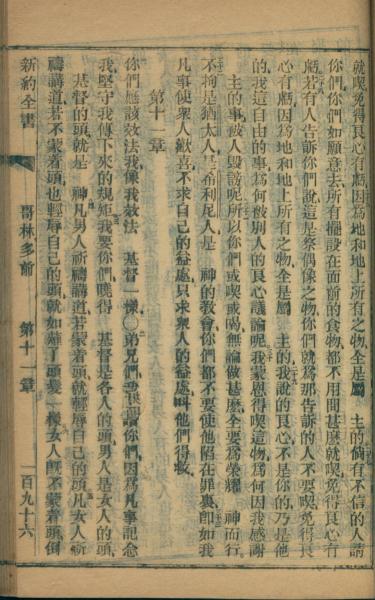 就喫免得良心有虧因爲地和地上所有之物全是屬 主的倘有不信的人請
你們你們如願意去所有擺設在面前的食物都不用問甚麼就喫免得良心有
虧若有人告訴你們說這是祭偶像之物你們就爲那告訴的人不要喫免得良
心有虧因爲地和地上所有之物全是屬 主的我說的良心不是你的乃是他
的我這自由的事爲何被別人的良心議論呢我蒙恩得喫這物爲何因我感謝
主的事被人毀謗呢所以你們或喫或喝無論做甚麼全要爲榮耀 神而行
不拘是猶太人是希利尼人是 神的教會你們都不要使他陷在罪裏卽如我
凡事使衆人歡喜不求自己的益處只求衆人的益處叫他們得救
第十一章
你們應該效法我像我效法 基督一樣〇弟兄們我讚你們因爲凡事記念
我堅守我傳下來的規矩我要你們曉得 基督是各人的頭男人是女人的頭
基督的頭就是 神凡男人祈禱講道若蒙着頭就輕辱自己的頭凡女人祈
禱講道若不蒙着頭也輕辱自己的頭就如薙了頭髮一樣女人旣不蒙着頭倒
新約全書 哥林多前 第十一章 一百九十六